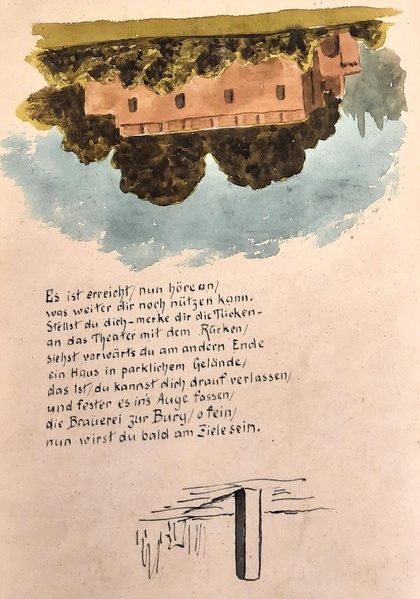 Es ist erreicht, nun höre an,
was weiter dir noch nützen kann.
Stellst du dich-merke dir die Tücken-
an das Theater mit dem Rücken,
siehst vorwärts du am andern Ende
ein Haus in parklichem Gelände,
das ist, du kannst dich drauf verlassen,
und fester es in's Auge fassen,
die Brauerei zur Burg, o fein,
nun wirst du bald am Ziele sein.